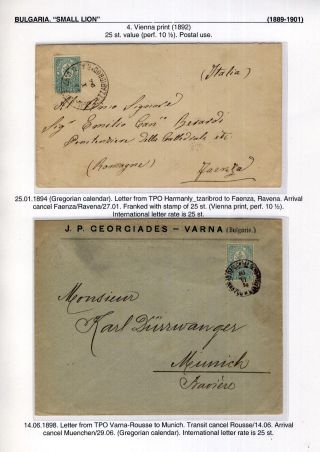 BULGARIA. "SMALL LION" (1889-1901)
4. Vienna print (1892)
25 st. value (perf. 10 ½). Postal use.
(Italia)
Sig. Emilio Can. Berardi
Penitenziere della Cattedrale
(Romagna)
Faenza
25.01.1894 (Gregorian calendar). Letter from TPO Harmanly_tzaribrod to Faenza, Ravena. Arrival
cancel Faenza/Ravena/27.01. Franked with stamp of 25 st. (Vienna print, perf. 10 ½).
International letter rate is 25 st.
J. P. GEORGIADES - VARNA (Bulgarie.)
Monsieur
Karl Dürrwanger
Munich
Bavière
14.06.1898. Letter from TPO Varna-Rousse to Munich. Transit cancel Rousse/14.06. Arrival
cancel Muenchen/29.06. (Gregorian calendar). International letter rate is 25 st.